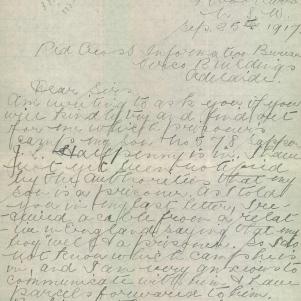 Sep. 26th 1917
Red Cross Information Bureau
Buildings
Adelaide.
Dear Sirs
Am writing to ask you if you
will kindly try and find out
for me which prisoners
camp my son No
Halfpenny is in. I have
not yet been notified
by the authorities that my
son is a prisoner. as I told
you in my last letter, I re-
ceived a cable from a relat-
ive in England saying that my
boy well & a prisoner. So I do
not know which camp he is
in, and I am very anxious to
communicate with him & have
parcels forwarded to him.